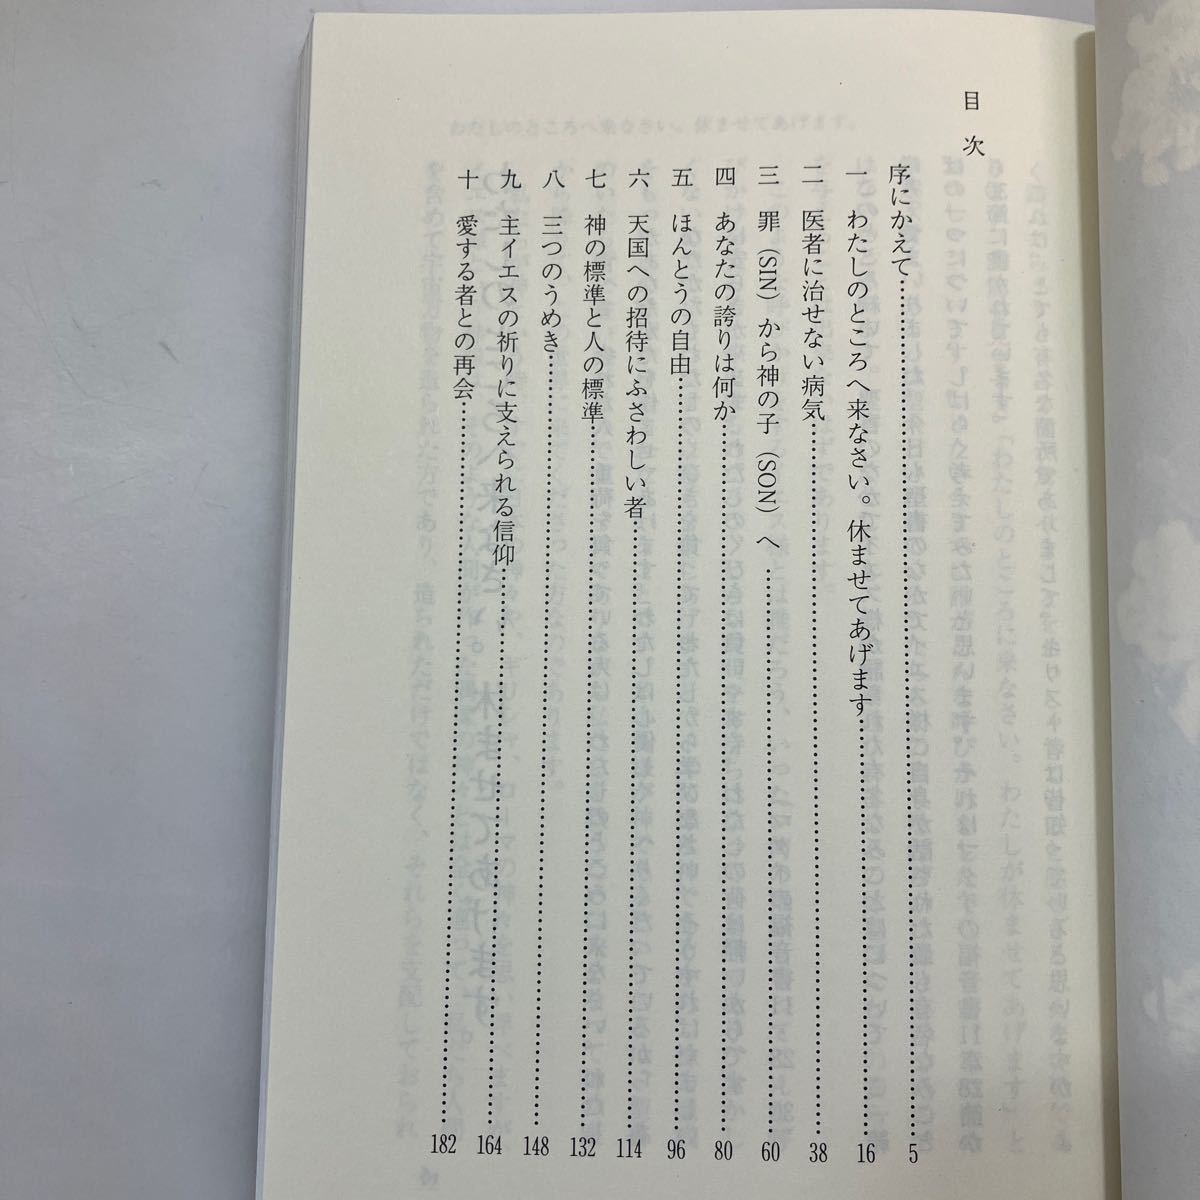 目次
序にかえて……5
一 わたしのところへ来なさい。休ませてあげます……16
二 医者に治せない病気……38
三 罪（SIN）から神の子（SON）へ……60
四 あなたの誇りは何か……80
五 ほんとうの自由……96
六 天国への招待にふさわしい者……114
七 神の標準と人の標準……132
八 三つのうめき……148
九 主イエスの祈りに支えられる信仰……164
十 愛する者との再会……182